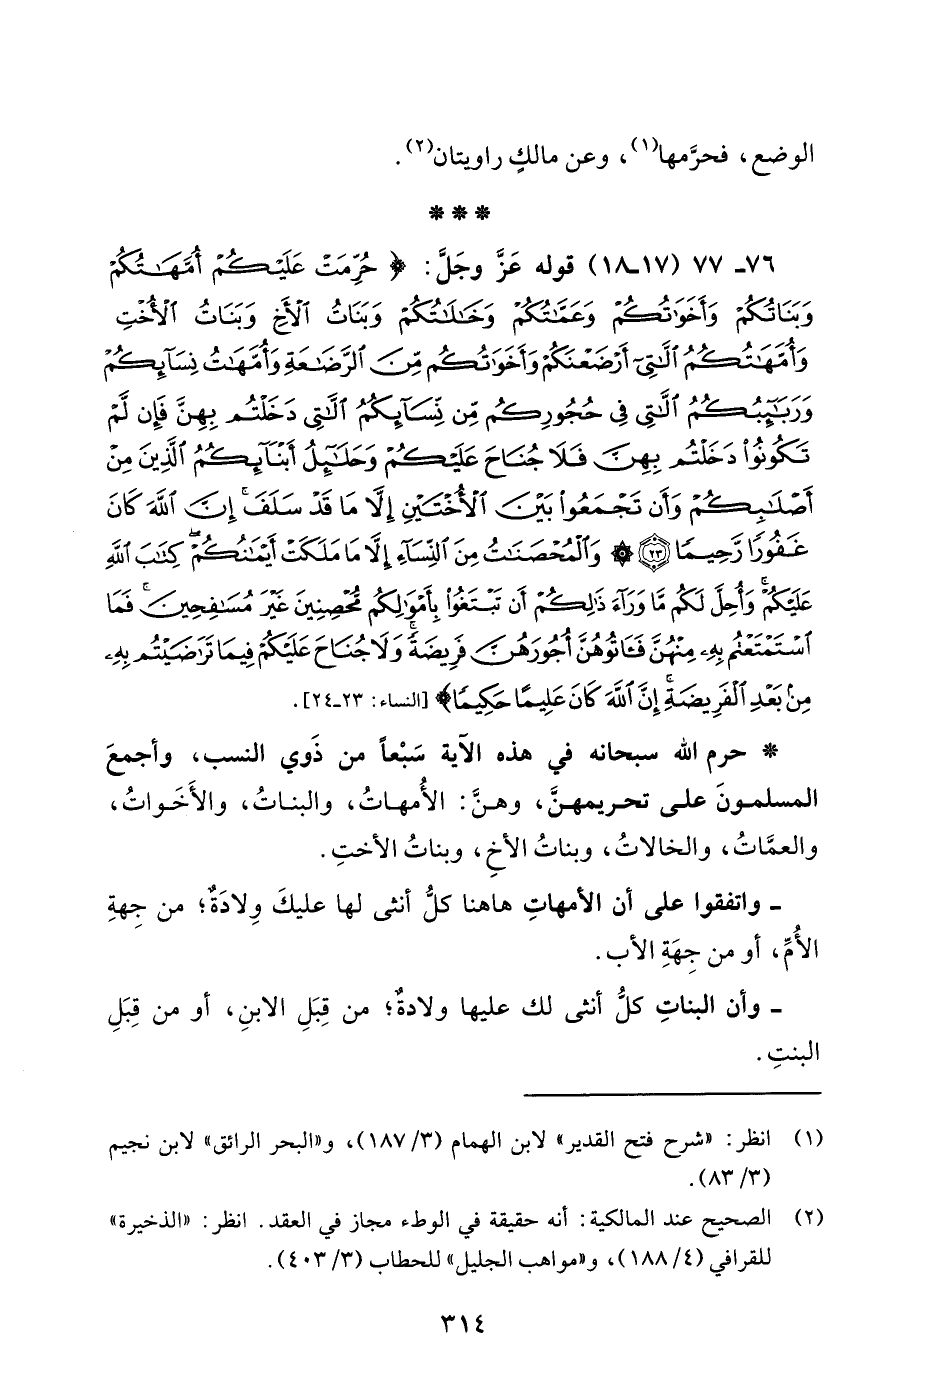 الوضع، فحرَّمها(١)، وعن مالكٍ راويتان(٢).
* * *
٧٦ـ ٧٧ (١٧ـ١٨) قوله عَزَّ وجَلَّ: ﴿حُرِّمَتْ عَلَيْكُمْ أُمَّهَٰتُكُمْ
وَبَنَاتُكُمْ وَأَخَوَٰتُكُمْ وَعَمَّٰتُكُمْ وَخَٰلَٰتُكُمْ وَبَنَاتُ ٱلْأَخِ وَبَنَاتُ ٱلْأُخْتِ
وَأُمَّهَٰتُكُمُ ٱلَّٰتِىٓ أَرْضَعْنَكُمْ وَأَخَوَٰتُكُم مِّنَ ٱلرَّضَٰعَةِ وَأُمَّهَٰتُ نِسَآئِكُمْ
وَرَبَٰٓئِبُكُمُ ٱلَّٰتِى فِى حُجُورِكُم مِّن نِّسَآئِكُمُ ٱلَّٰتِى دَخَلْتُم بِهِنَّ فَإِن لَّمْ
تَكُونُوا۟ دَخَلْتُم بِهِنَّ فَلَا جُنَاحَ عَلَيْكُمْ وَحَلَٰٓئِلُ أَبْنَآئِكُمُ ٱلَّذِينَ مِنْ
أَصْلَٰبِكُمْ وَأَن تَجْمَعُوا۟ بَيْنَ ٱلْأُخْتَيْنِ إِلَّا مَا قَدْ سَلَفَ ۗ إِنَّ ٱللَّهَ كَانَ
غَفُورًا رَّحِيمًا ٢٣ ۞ وَٱلْمُحْصَنَٰتُ مِنَ ٱلنِّسَآءِ إِلَّا مَا مَلَكَتْ أَيْمَٰنُكُمْ ۖ كِتَٰبَ ٱللَّهِ
عَلَيْكُمْ ۚ وَأُحِلَّ لَكُم مَّا وَرَآءَ ذَٰلِكُمْ أَن تَبْتَغُوا۟ بِأَمْوَٰلِكُم مُّحْصِنِينَ غَيْرَ مُسَٰفِحِينَ ۚ فَمَا
ٱسْتَمْتَعْتُم بِهِۦ مِنْهُنَّ فَـَٔاتُوهُنَّ أُجُورَهُنَّ فَرِيضَةً ۚ وَلَا جُنَاحَ عَلَيْكُمْ فِيمَا تَرَٰضَيْتُم بِهِۦ
مِنۢ بَعْدِ ٱلْفَرِيضَةِ ۚ إِنَّ ٱللَّهَ كَانَ عَلِيمًا حَكِيمًا﴾ [النساء: ٢٣ـ٢٤].
* حرم الله سبحانه في هذه الآية سَبْعاً من ذَوي النسب، وأجمعَ
المسلمونَ على تحريمهنَّ، وهنَّ: الأُمهاتُ، والبناتُ، والأَخَواتُ،
والعمَّاتُ، والخالاتُ، وبناتُ الأخِ، وبناتُ الأختِ.
ـ واتفقوا على أن الأمهاتِ هاهنا كلُّ أنثى لها عليكَ وِلادَةٌ؛ من جِهةِ
الأُمِّ، أو من جِهَةِ الأب.
ـ وأن البناتِ كلُّ أنثى لك عليها ولادةٌ؛ من قِبَلِ الابنِ، أو من قِبَلِ
البنتِ.
(١) انظر: «شرح فتح القدير» لابن الهمام (٣/ ١٨٧)، و«البحر الرائق» لابن نجيم
(٣/ ٨٣).
(٢) الصحيح عند المالكية: أنه حقيقة في الوطء مجاز في العقد. انظر: «الذخيرة»
للقرافي (٤/ ١٨٨)، و«مواهب الجليل» للحطاب (٣/ ٤٠٣).
٣١٤